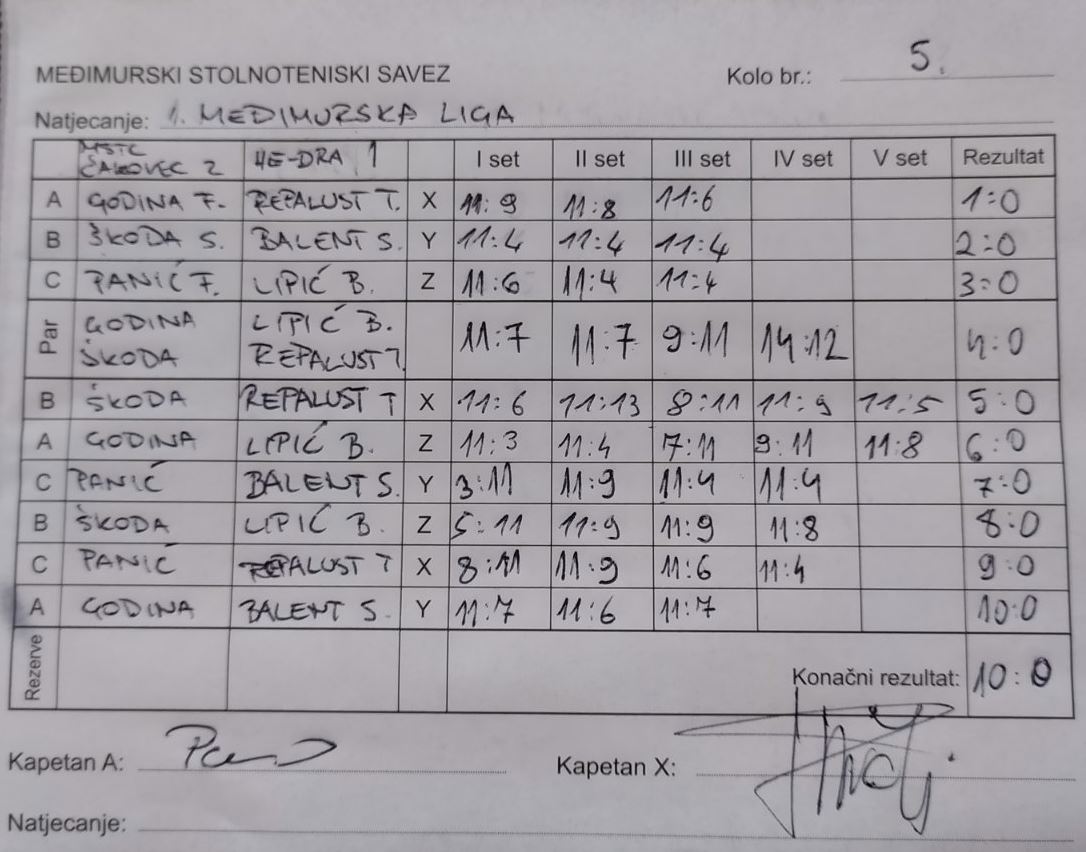 MEĐIMURSKI STOLNOTENISKI SAVEZ Kolo br.: 5.
Natjecanje: 1. MEĐIMURSKA LIGA
MSTC ČAKOVEC 2 HE-DRA 1 I set II set III set IV set V set Rezultat
A GODINA F. REPALUST T. X 11:9 11:8 11:6 1:0
B ŠKODA S. BALENT S. Y 11:4 11:4 11:4 2:0
C PANIĆ F. LIPIĆ B. Z 11:6 11:4 11:4 3:0
Par GODINA ŠKODA LIPIĆ B. REPALUST T 11:7 11:7 9:11 14:12 4:0
B ŠKODA REPALUST T X 11:6 11:13 8:11 11:9 11:5 5:0
A GODINA LIPIĆ B. Z 11:3 11:4 7:11 9:11 11:8 6:0
C PANIĆ BALENT S. Y 3:11 11:9 11:4 11:4 7:0
B ŠKODA LIPIĆ B. Z 5:11 11:9 11:9 11:8 8:0
C PANIĆ REPALUST T X 8:11 11:9 11:6 11:4 9:0
A GODINA BALENT S. Y 11:7 11:6 11:7 10:0
Rezerve Konačni rezultat: 10:0
Kapetan A: Kapetan X:
Natjecanje: